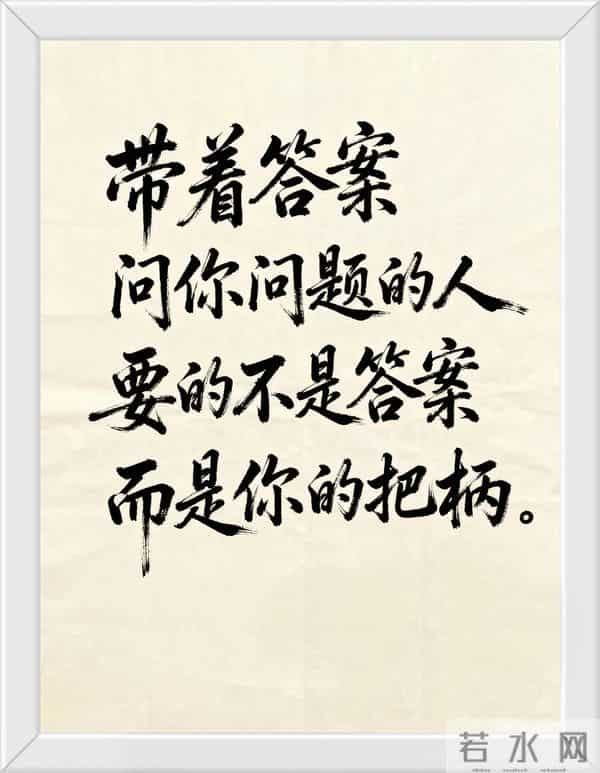 带着答案
问你问题的人
要的不是答案
而是你的把柄。
若水网